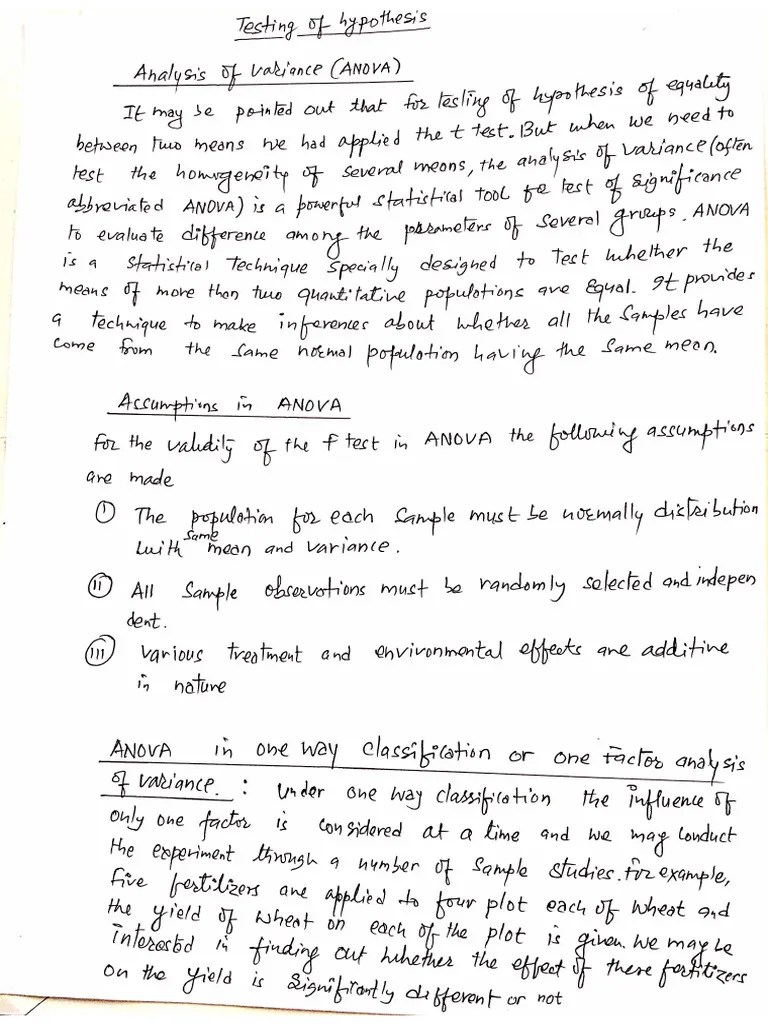 Testing of hypothesis
Analysis of variance (ANOVA)
It may be pointed out that for testing of hypothesis of equality
between two means we had applied the t test. But when we need to
test the homogeneity of several means, the analysis of variance (often
abbreviated ANOVA) is a powerful statistical tool for test of significance
to evaluate difference among the parameters of several groups. ANOVA
is a statistical technique specially designed to test whether the
means of more than two quantitative populations are equal. It provides
a technique to make inferences about whether all the samples have
come from the same normal population having the same mean.
Assumptions in ANOVA
For the validity of the f test in ANOVA the following assumptions
are made
(i) The population for each sample must be normally distribution
with same mean and variance.
(ii) All sample observations must be randomly selected and indepen
dent.
(iii) various treatment and environmental effects are additive
in nature
ANOVA in one way classification or one factor analysis
of variance. : Under one way classification the influence of
only one factor is considered at a time and we may conduct
the experiment through a number of sample studies. For example,
five fertilizers are applied to four plot each of wheat and
the yield of wheat on each of the plot is given. We may be
interested in finding out whether the effect of these fertilizers
on the yield is significantly different or not